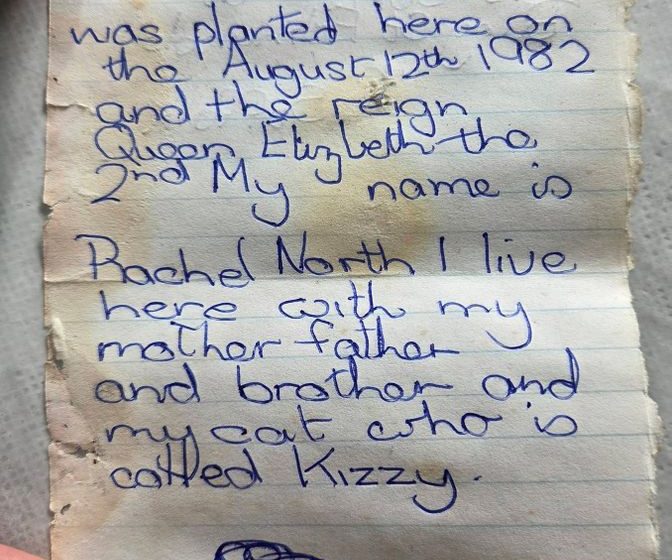 was planted here on
the August 12th 1982
and the reign
Queen Elizbeth the
2nd My name is
Rachel North I live
here with my
mother father
and brother and
my cat who is
called Kizzy.